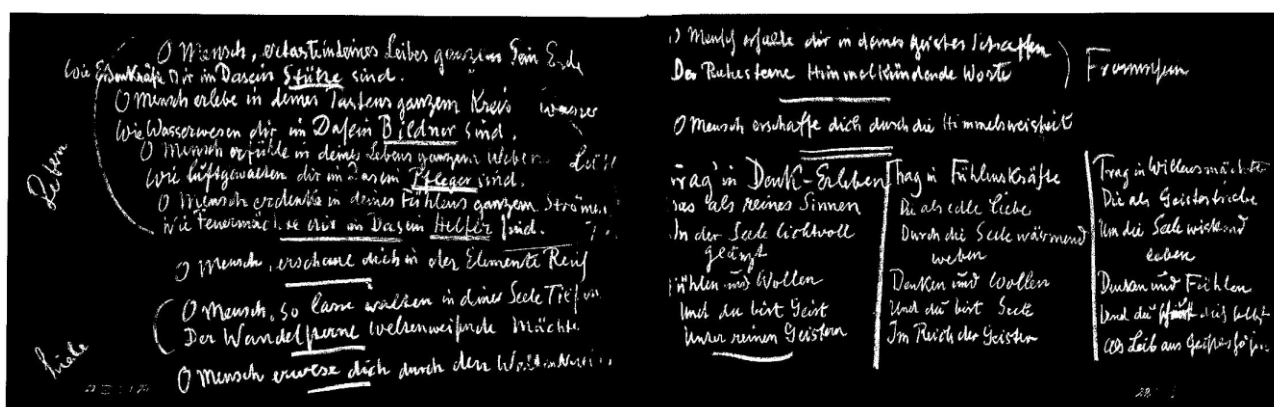 O Mensch, ertaste in deines Leibes ganzem Sein Erde
Wie Erdenkräfte dir im Dasein Stütze sind.
O Mensch erlebe in deines Tastens ganzem Kreis Wasser
Wie Wasserwesen dir im Dasein Bildner sind.
O Mensch erfühle in deines Lebens ganzem Weben
Wie Luftgewalten dir im Dasein Pfleger sind.
O Mensch erdenke in deines Fühlens ganzem Strömen
Wie Feuermächte dir im Dasein Helfer sind.
Leben
O Mensch, erschaue dich in der Elemente Reich
O Mensch, so lasse walten in deiner Seele Tiefen
Der Wandelsterne weltenweisende Mächte
Liebe
O Mensch erwese dich durch den
O Mensch erhalte dir in deines Geistes Schaffen
Der Ruhesterne Himmelkündende Worte
Frommsein
O Mensch erschaffe dich durch die Himmelsweisheit
Trag in Denk-Erleben
Das als reines Sinnen
In der Seele lichtvoll
glänzt
Fühlen und Wollen
Und du bist Geist
Unter reinen Geistern
Trag in Fühlenskräfte
Die als edle Liebe
Durch die Seele wärmend
weben
Denken und Wollen
Und du bist Seele
Im Reich der Geister
Trag in Willensmächte
Die als Geistestriebe
Um die Seele wirkend
leben
Denken und Fühlen
Und du dich selbst
Als Leib aus